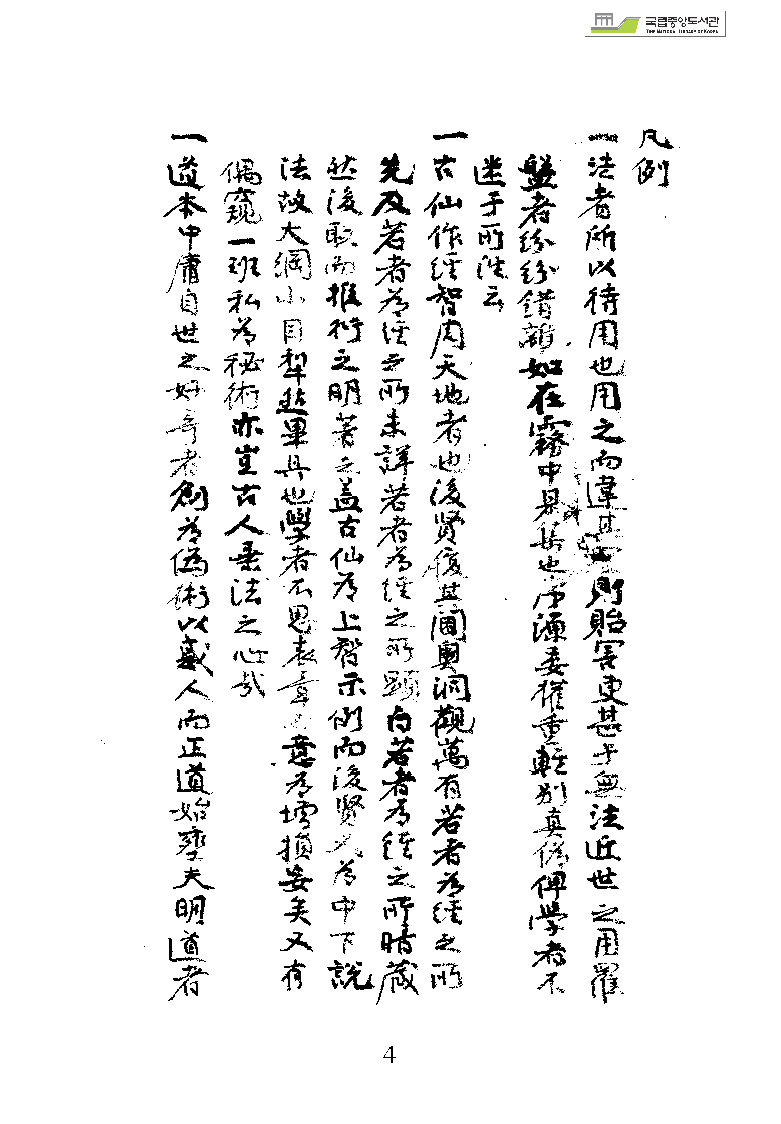 국립중앙도서관
THE NATIONAL LIBRARY OF KOREA
凡例
一法者所以待用也用之而違其則貽害更甚于無法近世之用羅
盤者紛紛錯雜如在霧中是集也源委權重輕別真偽俾學者不
迷于所從云
一古仙作經智周天地者也後賢復其閫奧洞觀萬有若者為經之所
先及若者為經之所未詳若者為經之所顯白若者為經之所暗藏
然後取而推衍之明著之盖古仙為上智示例而後賢又為中下說
法故大綱小目犁然畢具也學者不思表章意為增損妄矣又有
偶窺一班私為秘術亦豈古人垂法之心哉
一道本中庸自世之好奇者創為偽術以惑人而正道始壅夫明道者
4